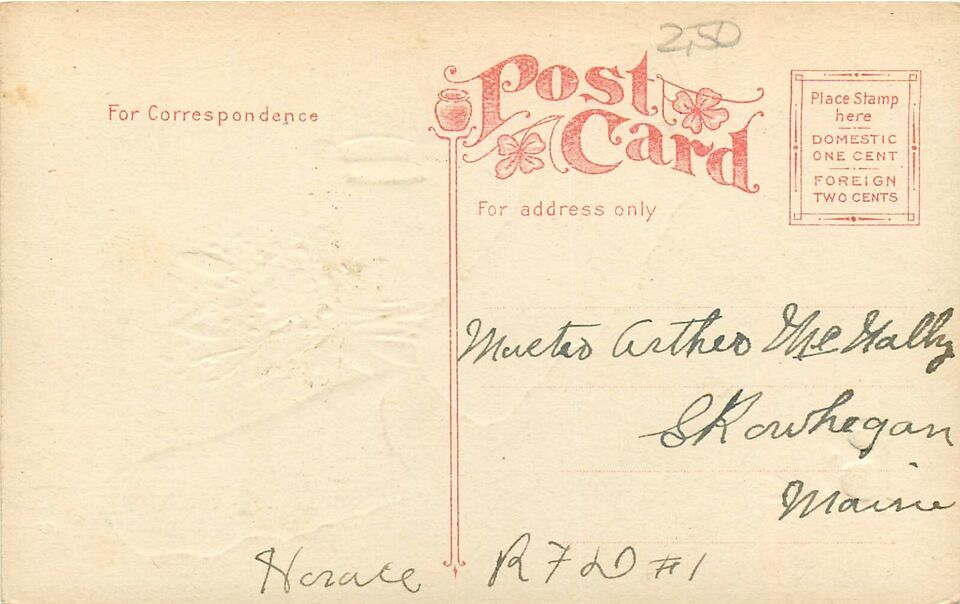 2,50
Post
Card
For Correspondence
For address only
Place Stamp
here
DOMESTIC
ONE CENT
FOREIGN
TWO CENTS
Master Arther McNally
Skowhegan
Maine
Horace R F D #1